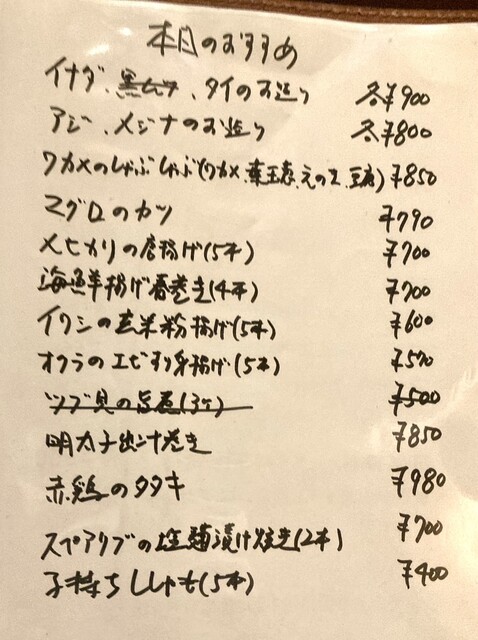 本日のおすすめ
イナダ、黒ムツ、タイのお造り 各¥900
アジ、メジナのお造り 各¥800
ワカメのしゃぶしゃぶ(ワカメ、葉玉ねぎ、えのき、豆腐) ¥850
マグロのカツ ¥790
メヒカリの唐揚げ(5本) ¥700
海鮮揚げ春巻き(4本) ¥700
イワシの玄米粉揚げ(5本) ¥600
オクラのエビすり身揚げ(5本) ¥570
ツブ貝の旨煮(3ケ) ¥500
明太子出汁巻き ¥850
赤鶏のタタキ ¥980
スペアリブの塩麹漬け焼き(2本) ¥700
子持ちししゃも(5本) ¥400